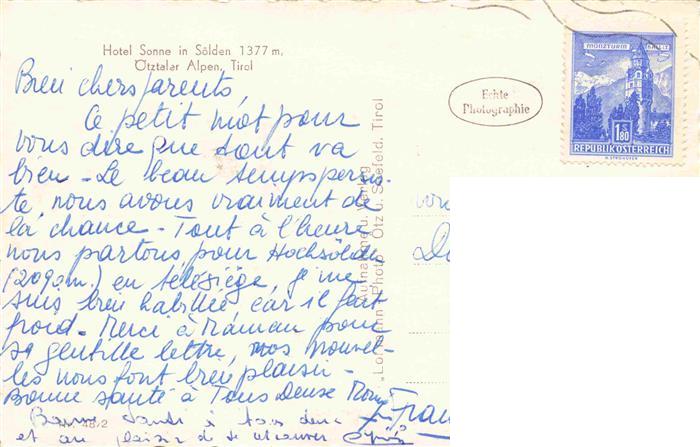 Hotel Sonne in Sölden 1377 m,
Ötztaler Alpen, Tirol
Echte
Photographie
MÜNZTURM HALL I.T.
S
1.80
REPUBLIK ÖSTERREICH
Bien chers parents,
Ce petit mot pour
vous dire que tout va
bien - Le beau temps persis-
te, nous avons vraiment de
la chance - Tout à l'heure
nous partons pour Hochsölden
(2090m.) en télésiège, je me
suis bien habillée, car il fait
froid - Merci à Maman pour
sa gentille lettre, vos nouvel-
les nous font bien plaisir -
Bonne santé à Tous Deux
Bonne santé à tous deux
et au plaisir de se retrouver
Nr. 48/2
Photo Ötz u. Seefeld, Tirol